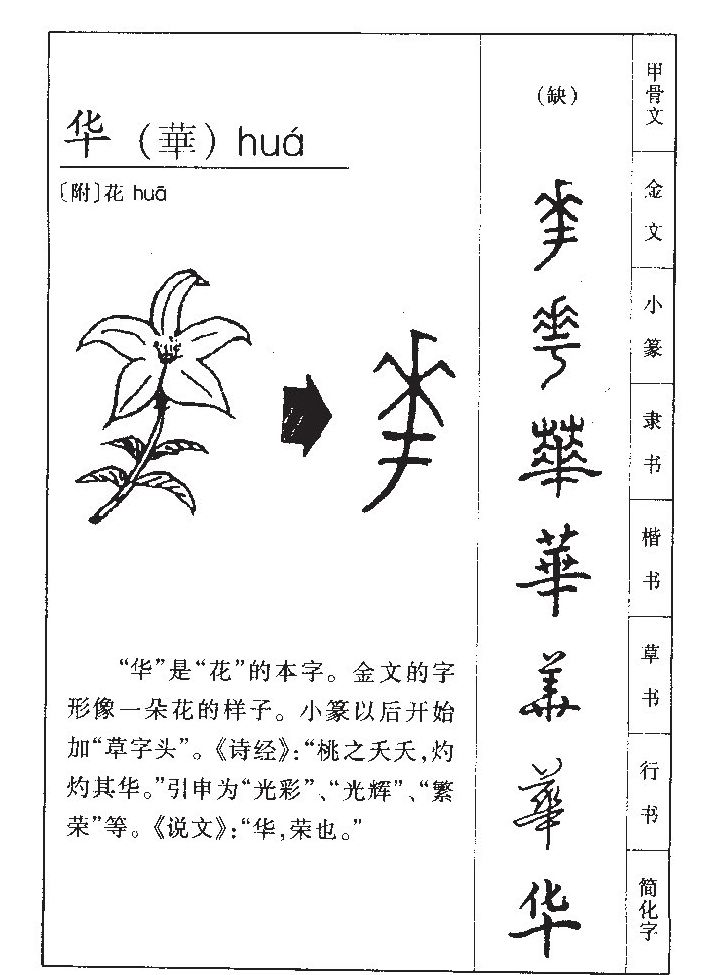 华（華）huá
〔附〕花 huā
“华”是“花”的本字。金文的字
形像一朵花的样子。小篆以后开始
加“草字头”。《诗经》：“桃之夭夭，灼
灼其华。”引申为“光彩”、“光辉”、“繁
荣”等。《说文》：“华，荣也。”
（缺）
華
華
華
華
华
甲骨文
金文
小篆
隶书
楷书
草书
行书
简化字